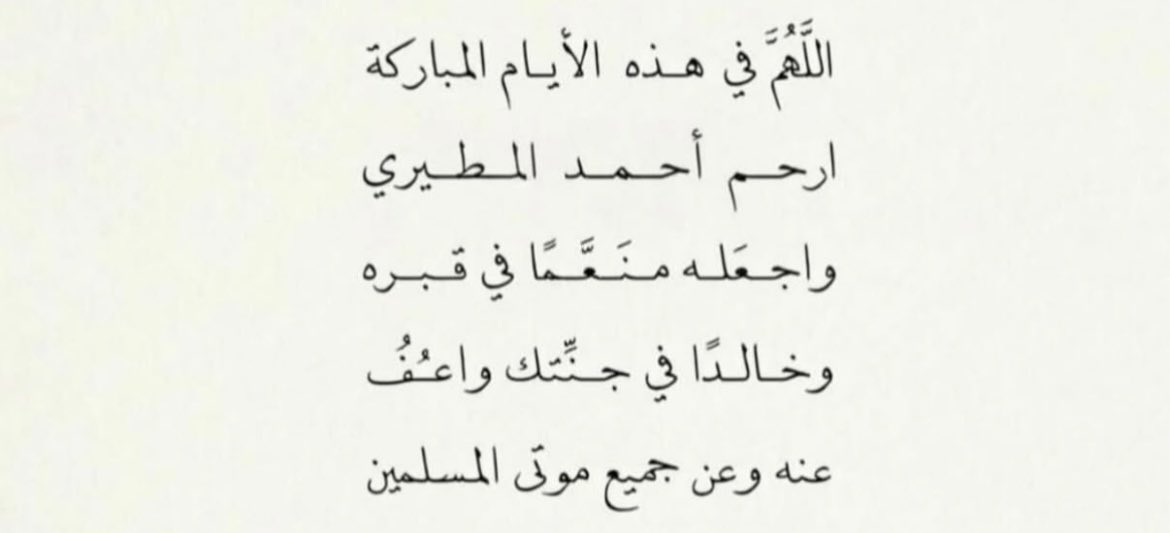 اللَّهُمَّ في هذه الأيام المباركة
ارحم أحمد المطيري
واجعَله منَعَّمًا في قبره
وخالدًا في جنَّتِك واعفُ
عنه وعن جميع موتى المسلمين